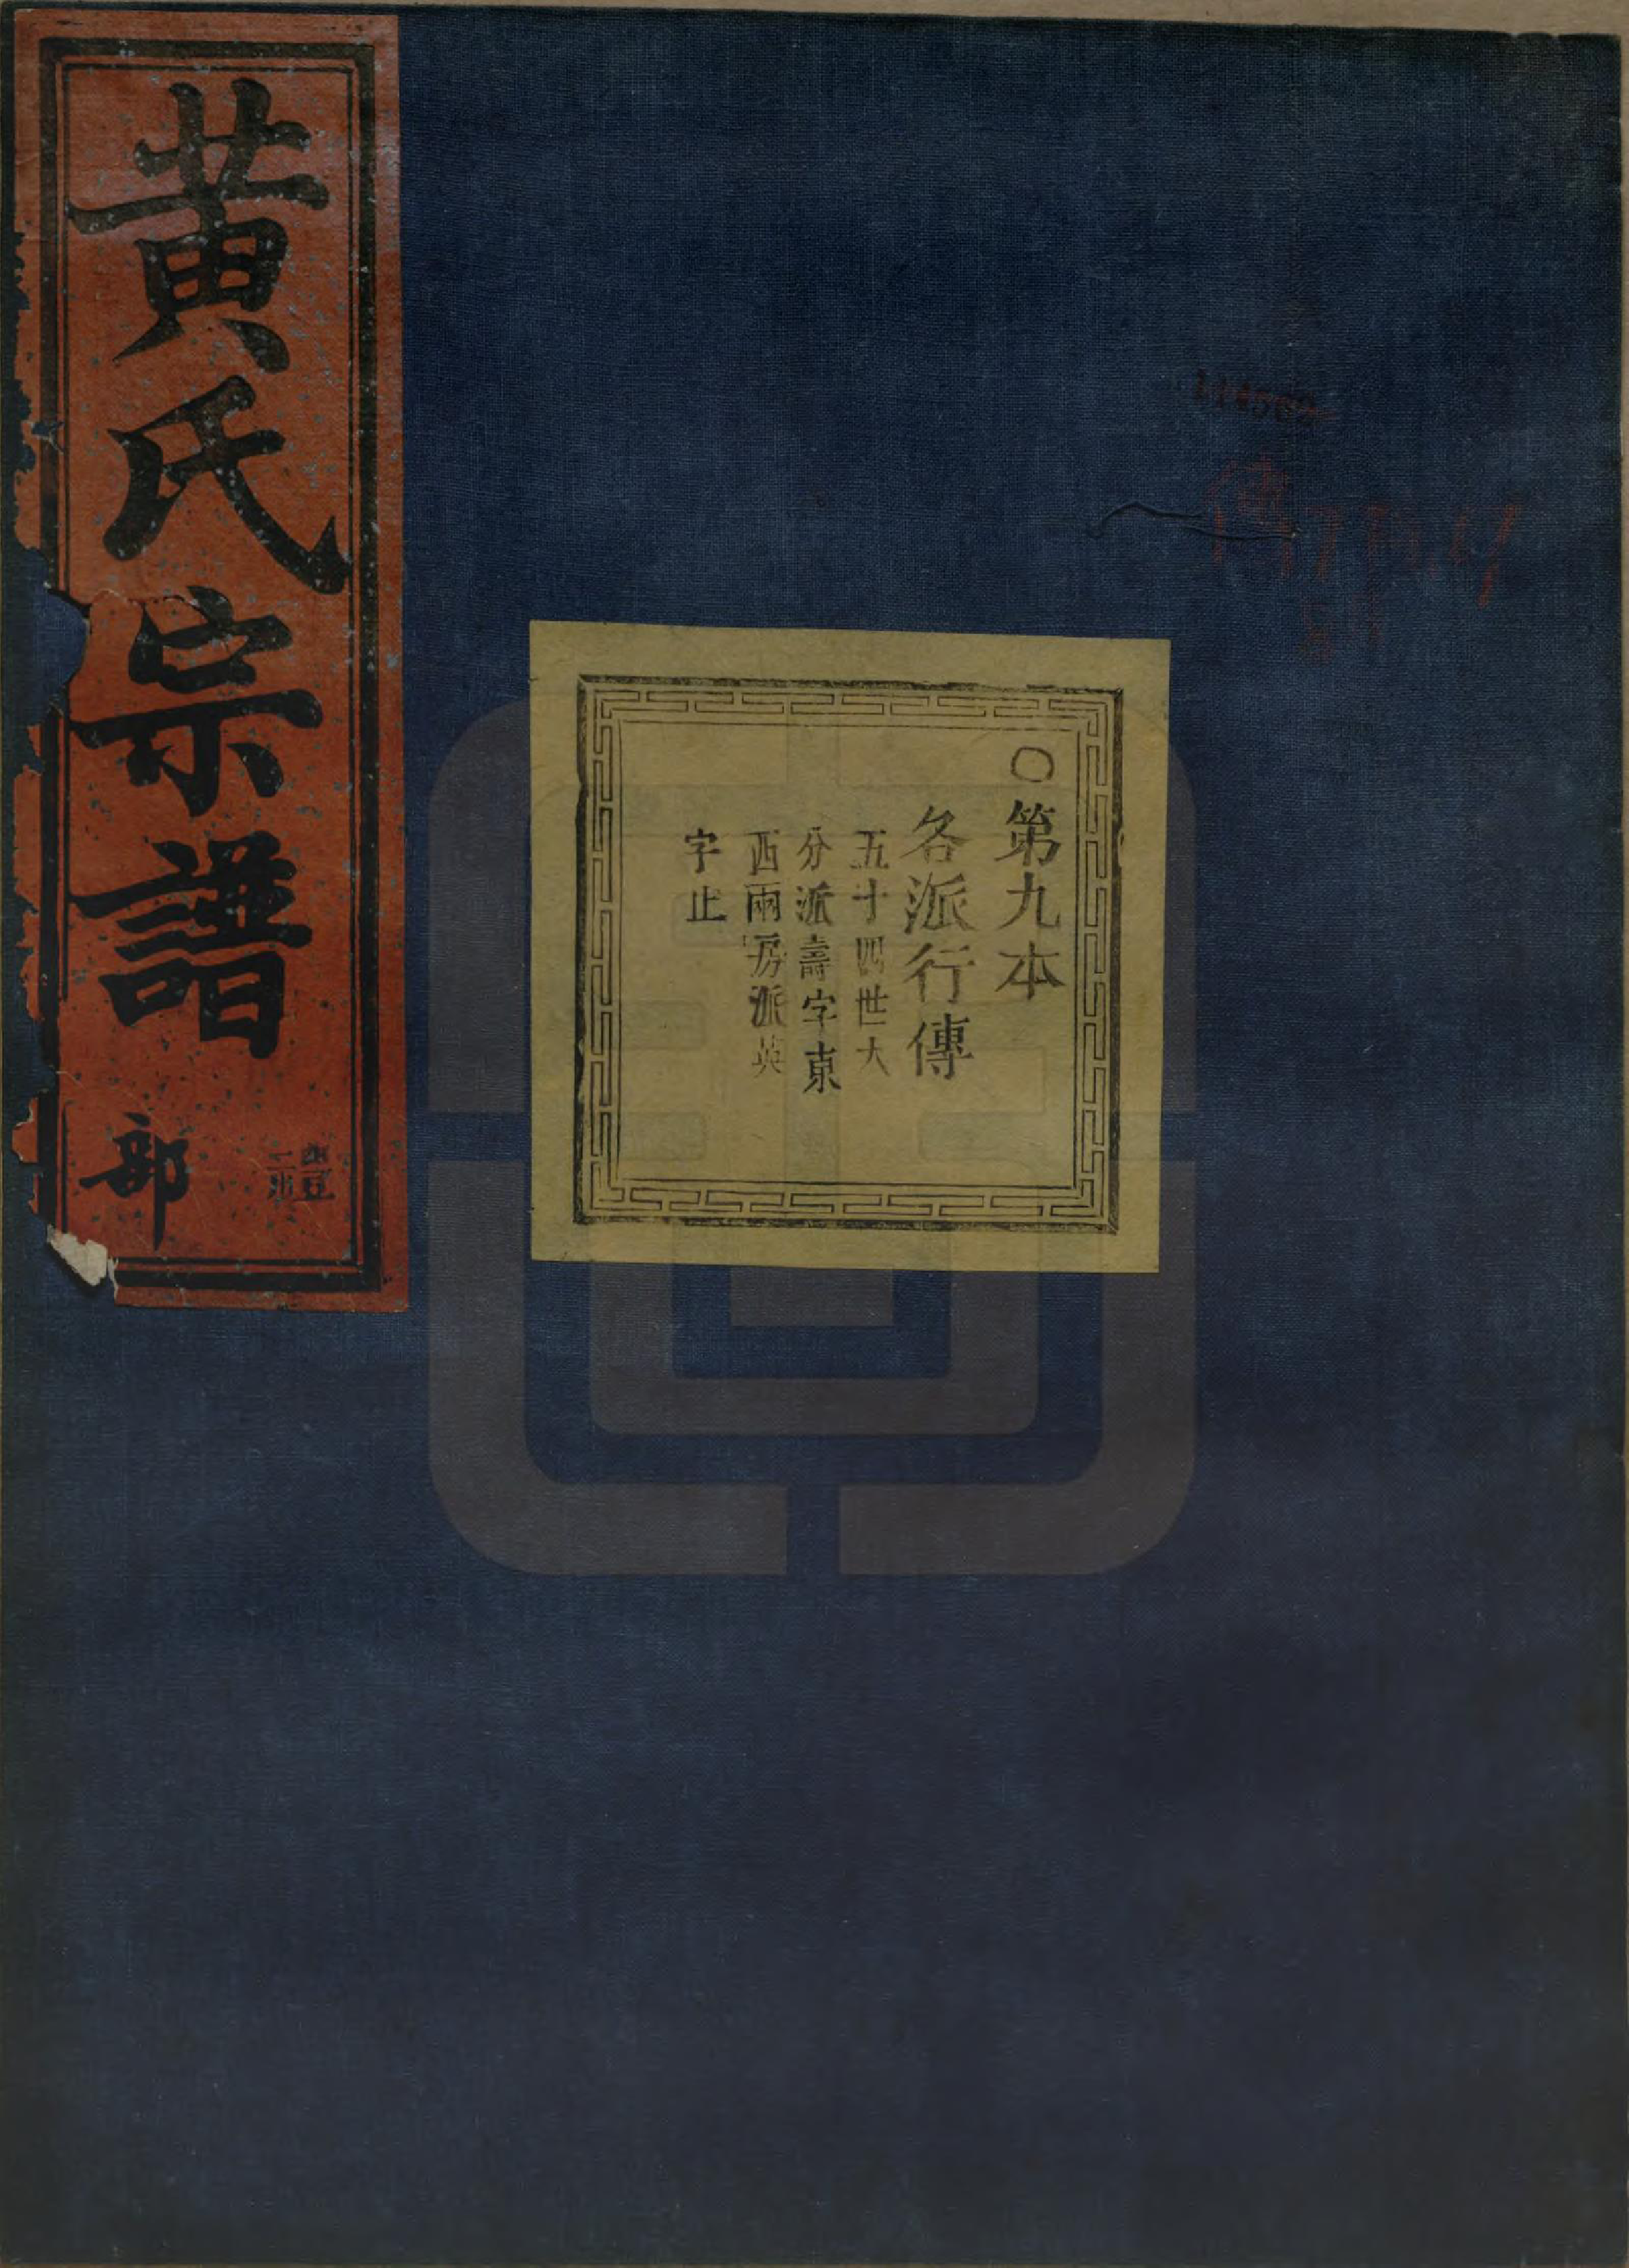 黄氏宗譜
部
○第九本
各派行傳
五十四世大
分派壽字東
西兩房派英
字止